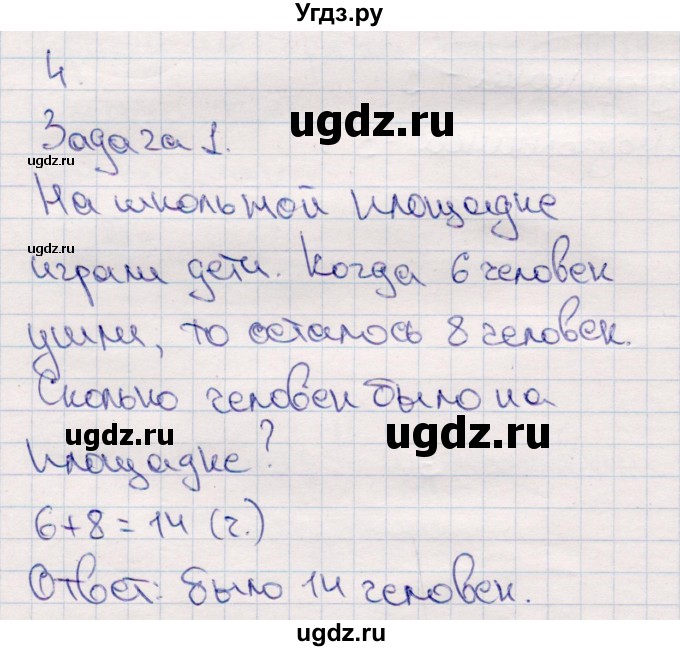 Угдз.ру
4.
ugdz.ru
Задача 1.
ugdz.ru
На школьной площадке
ugdz.ru
играли дети. Когда 6 человек
ушли, то осталось 8 человек.
Сколько человек было на
ugdz.ru
ugdz.ru
площадке?
6+8=14 (ч.)
Ответ: было 14 человек.
ugdz.ru